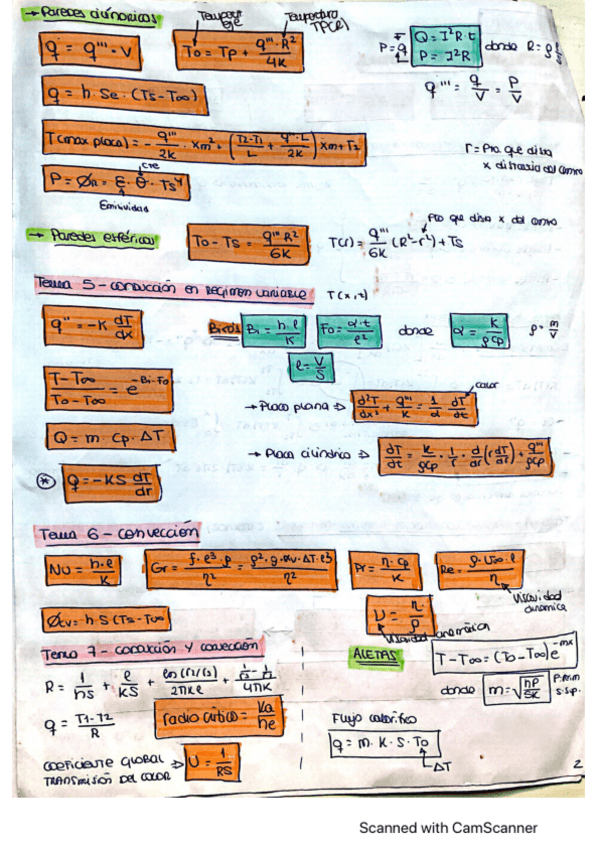 → Paredes cilíndricas
Temperatura eje
Temperatura TP(R)
q = q''' · V
To = Tp + q''' · R² / 4K
P = q
Q = I² R · t
P = I² R
donde R = ρ
q''' = q/V = P/V
q = h · Se · (Ts - T∞)
T(max placa) = - q'''/2k · Xm² + (T2-T1/L + q'''·L/2k) Xm + T1
r = Pto que dista
x distancia del centro
cte
P = ØR = ε · σ · Ts⁴
Emisividad
→ Paredes esféricas
To - Ts = q''' R² / 6K
T(r) = q'''/6K (R² - r²) + Ts
Pto que dista x del centro
Tema 5 - conducción en régimen variable
T(x,t)
q'' = -K dT/dx
Biots
Bi = h·l/K
Fo = α·t/l²
donde
α = K/ρcp
ρ = m/V
l = V/S
T - T∞ / To - T∞ = e^-Bi·Fo
→ Placa plana ⇒ d²T/dx² + q'''/K = 1/α · dT/dt
calor
Q = m · Cp · ΔT
→ Placa cilíndrica ⇒ dT/dt = K/ρcp · 1/r · d/dr (r dT/dr) + q'''/ρcp
* q = -KS dT/dr
Tema 6 - convección
Nu = h·l/K
Gr = f·l³·ρ/η² = ρ²·g·αv·ΔT·l³/η²
Pr = η·cp/K
Re = ρ·U∞·l/η
Viscosidad dinamica
Øcv = h·S (Ts - T∞)
υ = η/ρ
Viscosidad cinemática
Tema 7 - conducción y convección
ALETAS
T - T∞ = (To - T∞) e^-mx
R = 1/hS + l/KS + ln(r2/r1)/2πKl + 1/r1 - 1/r2 / 4πK
donde m = √hP/SK
q = T1-T2/R
radio crítico = Ka/he
Flujo calorífico
q = m · K · S · To
ΔT
COEFICIENTE GLOBAL
TRANSMISIÓN DEL CALOR ⇒ U = 1/RS
2
Scanned with CamScanner